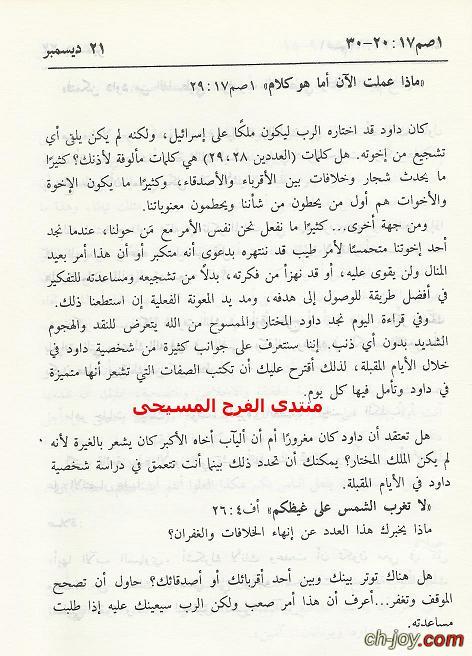 ١صم١٧:٢٠-٣٠
٢١ ديسمبر
«ماذا عملت الآن أما هو كلام» ١صم١٧:٢٩
كان داود قد اختاره الرب ليكون ملكًا على إسرائيل، ولكنه لم يكن يلقى أي
تشجيع من إخوته. هل كلمات (العددين ٢٨،٢٩) هي كلمات مألوفة لأذنك؟ كثيرًا
ما يحدث شجار وخلافات بين الأقرباء والأصدقاء، وكثيرًا ما يكون الإخوة
والأخوات هم أول من يحطون من شأننا ويحطمون معنوياتنا.
ومن جهة أخرى... كثيرًا ما نفعل نحن نفس الأمر مع مَن حولنا، عندما نجد
أحد إخوتنا متحمسًا لأمر طيب قد ننتهره بدعوى أنه متكبر أو أن هذا أمر بعيد
المنال ولن يقوى عليه، أو قد نهزأ من فكرته، بدلًا من تشجيعه ومساعدته للتفكير
في أفضل طريقة للوصول إلى هدفه، ومد يد المعونة الفعلية إن استطعنا ذلك.
وفي قراءة اليوم نجد داود المختار والممسوح من الله يتعرض للنقد والهجوم
الشديد بدون أي ذنب. إننا سنتعرف على جوانب كثيرة من شخصية داود في
خلال الأيام المقبلة، لذلك أقترح عليك أن تكتب الصفات التي تشعر أنها متميزة
في داود وتأمل فيها كل يوم.
منتدى الفرح المسيحى
هل تعتقد أن داود كان مغرورًا أم أن أليآب أخاه الأكبر كان يشعر بالغيرة لأنه
لم يكن الملك المختار؟ يمكنك أن تحدد ذلك بينما أنت تتعمق في دراسة شخصية
داود في الأيام المقبلة.
«لا تغرب الشمس على غيظكم» أف٤:٢٦
ماذا يخبرك هذا العدد عن إنهاء الخلافات والغفران؟
هل هناك توتر بينك وبين أحد أقربائك أو أصدقائك؟ حاول أن تصحح
الموقف وتغفر...أعرف أن هذا أمر صعب ولكن الرب سيعينك عليه إذا طلبت
مساعدته.
ch-joy.com